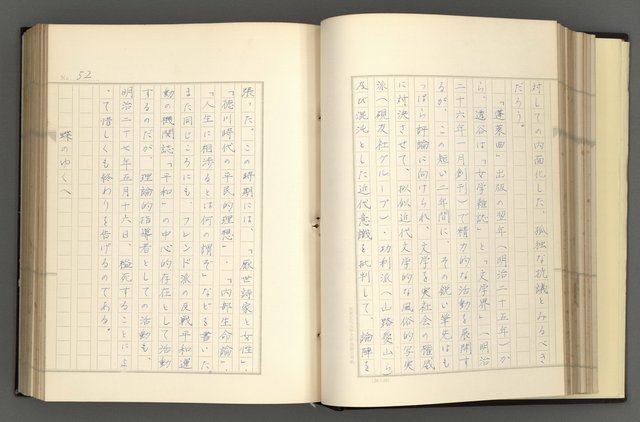 対しての内面化した、孤独な抗議とみるべき
だろう。
「蓬莱曲」出版の翌年(明治二十五年)か
ら、透谷は「女学雑誌」と「文学界」(明治
二十六年一月創刊)で精力的な活動を展開す
るが、この短い二年間に、その鋭い筆先はも
っぱら評論に向けられ、文学を実社会の権威
に対決させて、擬似近代文学的な風俗的写実
派(硯友社グループ)・功利派(山路愛山ら)
及び混沌とした近代意識を批判して、論陣を
No. 52
張った。この時期には、「厭世詩家と女性」、
「徳川時代の平民的理想」・「内部生命論」、
「人生に相渉るとは何の謂ぞ」などを書いた。
また同じころにも、フレンド派の反戦平和運
動の機関誌「平和」の中心的存在として活動
するのだが、理論的指導者としての活動も、
明治二十七年五月十六日、縊死することによ
って惜しくも終わりを告げるのである。
蝶のゆくへ